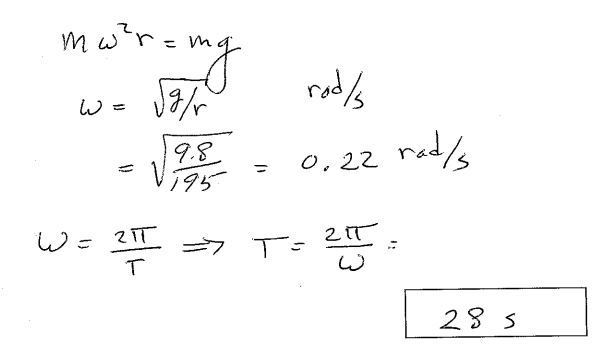 mω²r = mg
ω = √g/r rad/s
= √9.8/195 = 0.22 rad/s
ω = 2π/T ⟹ T = 2π/ω =
28 s